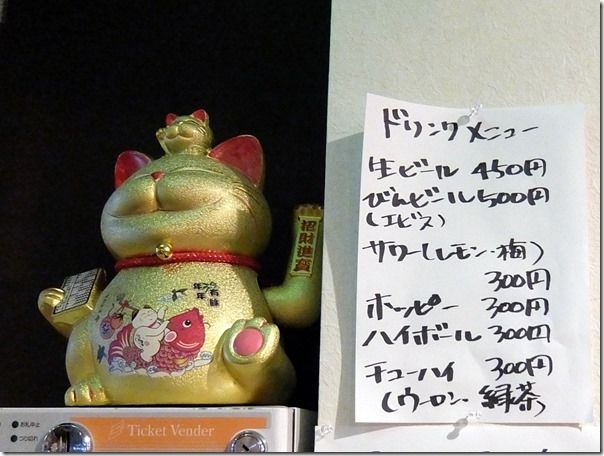 ドリンクメニュー
生ビール 450円
びんビール 500円
(エビス)
サワー(レモン・梅)
300円
ホッピー 300円
ハイボール 300円
チューハイ 300円
(ウーロン・緑茶)
招財進寶
年年有餘
お札中止
つり切れ
Ticket Vender